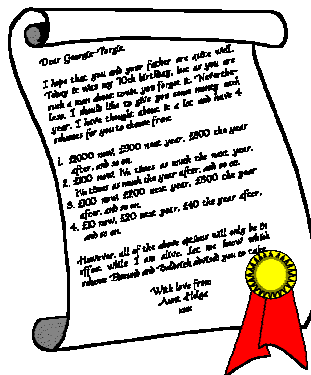 Dear Georgie-Porgie
I hope that you and your father are quite well.
Today it was my 70th birthday, but as you are
such a man about town you forgot it. Neverthe-
less, I should like to give you some money each
year. I have thought about it a lot and have 4
schemes for you to choose from
1. £1000 now, £900 next year, £800 the year
after, and so on.
2. £100 now, 1½ times as much the next year,
1½ times as much the year after, and so on.
3. £100 now, £200 next year, £300 the year
after, and so on.
4. £10 now, £20 next year, £40 the year after,
and so on.
However, all of the above options will only be in
effect while I am alive. Let me know which
scheme and advised you to take
With love from
Aunt Helga
xxx